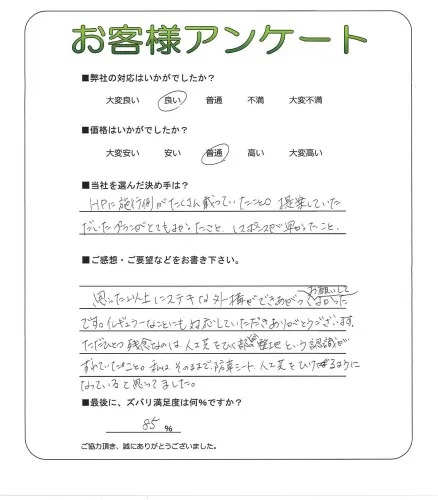 お客様アンケート
■弊社の対応はいかがでしたか？
大変良い 良い 普通 不満 大変不満
■価格はいかがでしたか？
大変安い 安い 普通 高い 大変高い
■当社を選んだ決め手は？
HPに施行例がたくさん載っていたこと。提案していた
だいたプランがとてもよかったこと、レスポンスが早かったこと、
■ご感想・ご要望などをお書き下さい。
お願いして
思った以上にステキな外構ができあがってよかった
です。イレギュラーなことにも対応していただきありがとうございます。
ただひとつ残念なのは、人工芝をひく部分の整地という認識が
ずれていたこと。私はそのままで防草シート、人工芝をひけるように
なっていると思ってました。
■最後に、ズバリ満足度は何%ですか？
85 %
ご協力頂き、誠にありがとうございました。